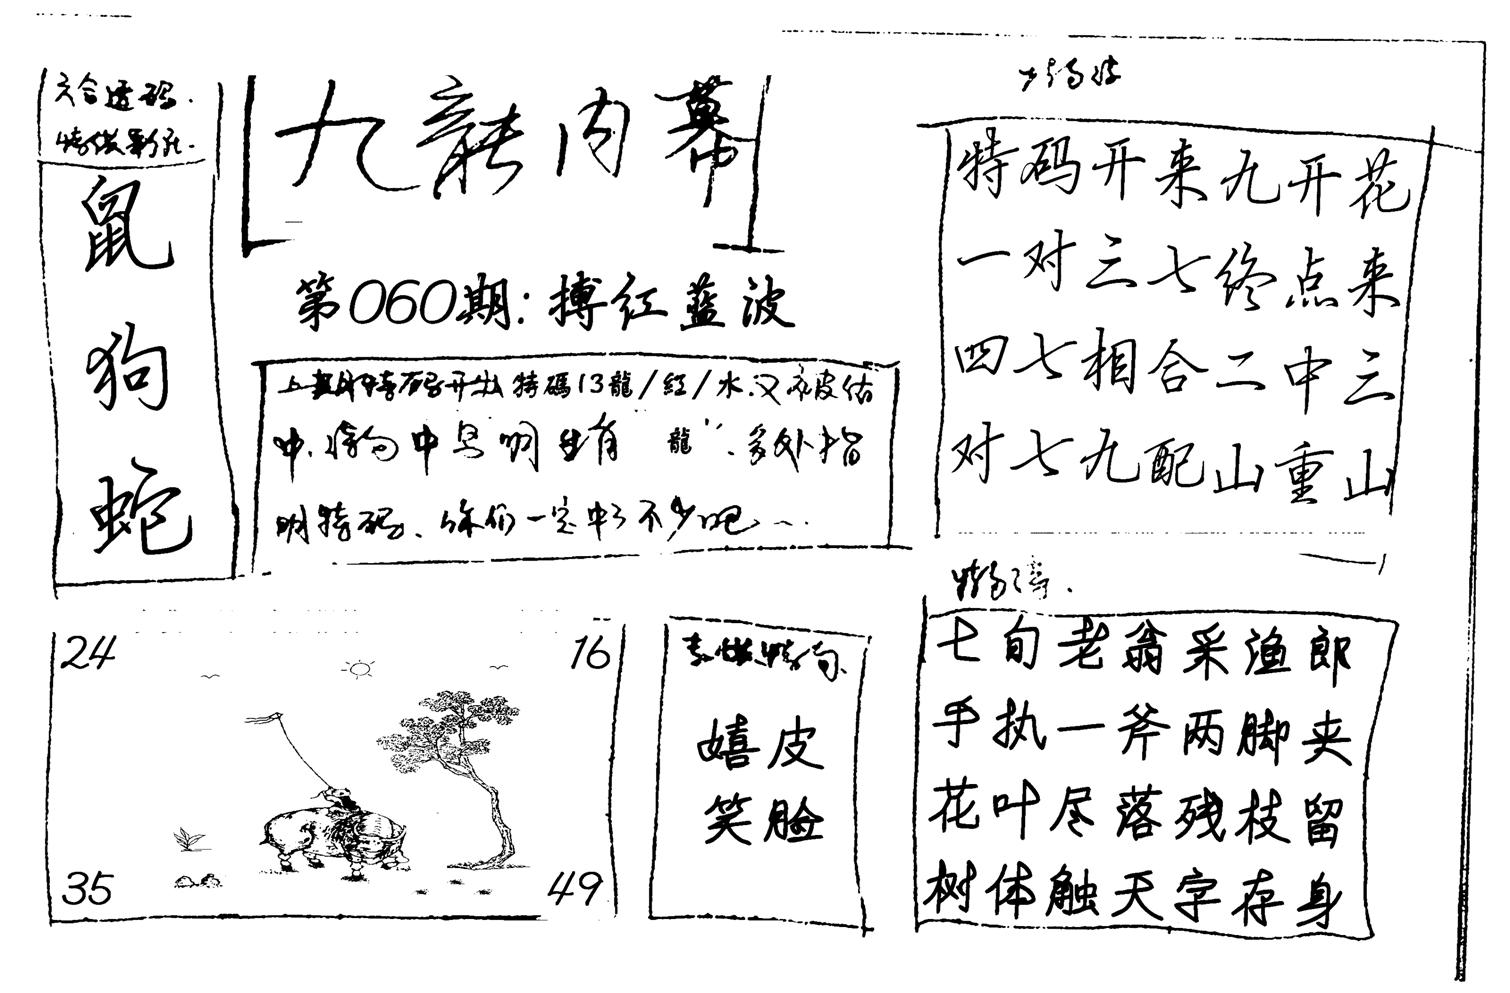 六合透码.
鼠
狗
蛇
九龍内幕
第060期:搏红蓝波
开出特碼13龍/红/水.又被估
中.中 明生肖"龍".多处指
明特码、你们一定中了不少吧
24
16
35
49
嬉皮
笑脸
特码开来九开花
一对三七终点来
四七相合二中三
对七九配山重山
七旬老翁采渔郎
手执一斧两脚夹
花叶尽落残枝留
树体触天字存身